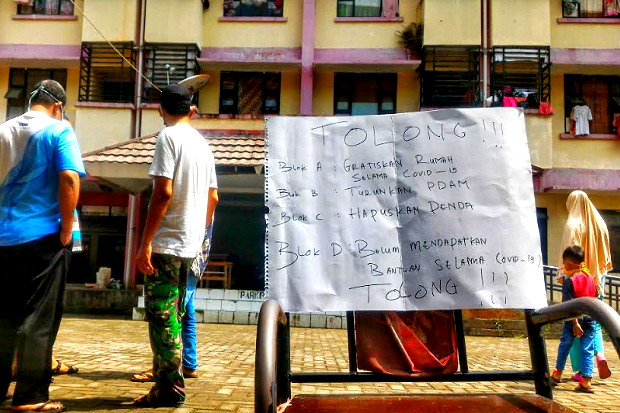 TOLONG !!!
BLOK A : GRATISKAN RUMAH
SELAMA COVID-19
BLOK B : TURUNKAN PDAM
BLOK C : HAPUSKAN DENDA
BLOK D : BELUM MENDAPATKAN
BANTUAN SELAMA COVID-19
TOLONG !!!
PARKIR